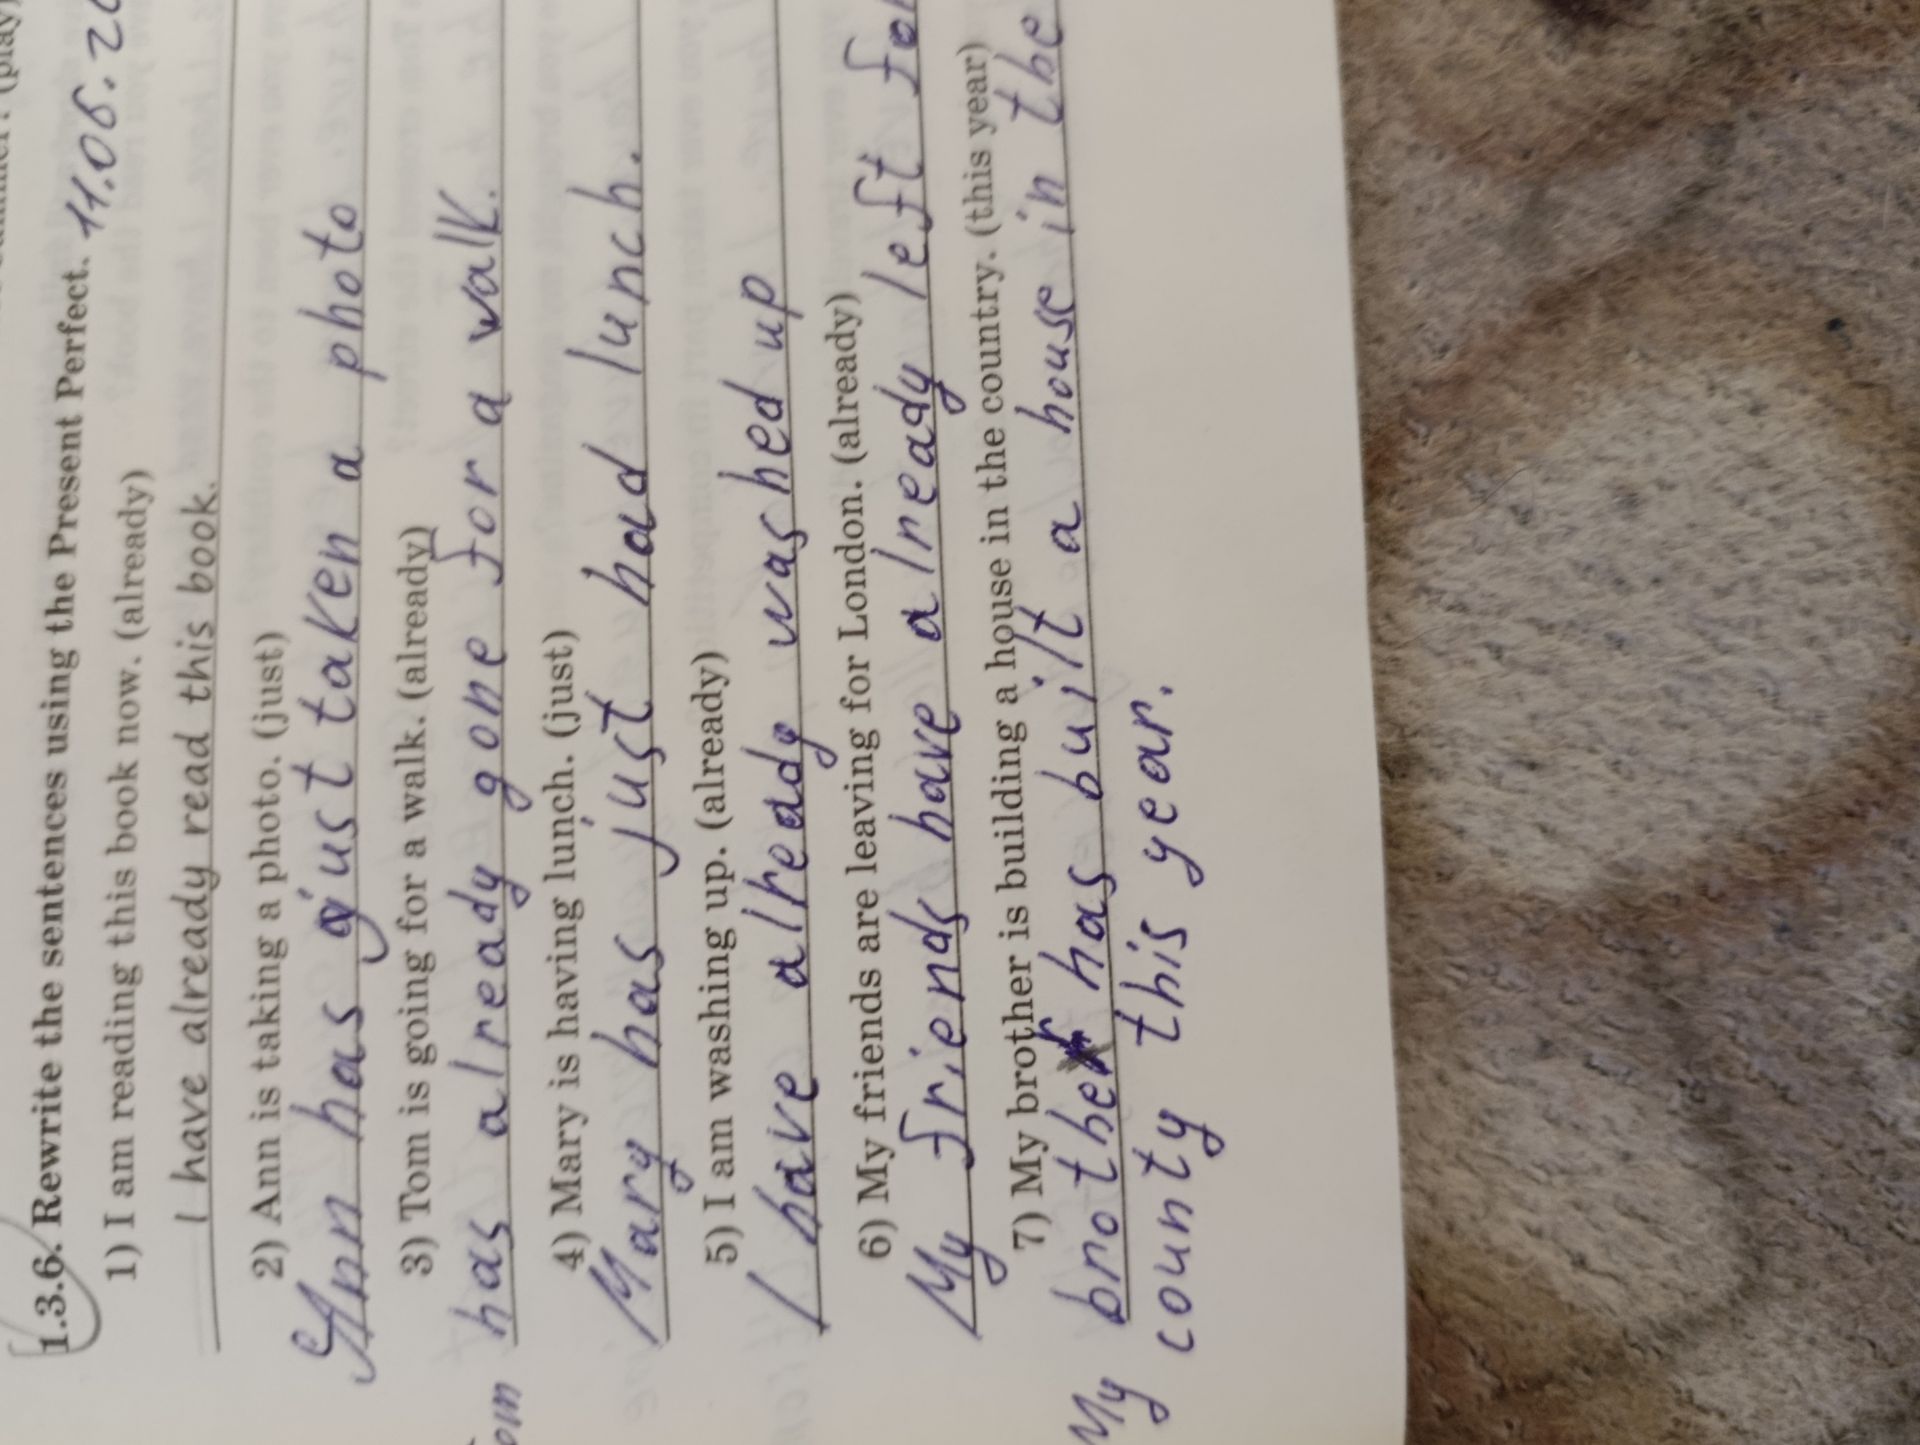 1.3.6. Rewrite the sentences using the Present Perfect. 11.06.
1) I am reading this book now. (already)
I have already read this book.
2) Ann is taking a photo. (just)
Ann has just taken a photo
3) Tom is going for a walk. (already)
Tom has already gone for a walk.
4) Mary is having lunch. (just)
Mary has just had lunch.
5) I am washing up. (already)
I have already washed up
6) My friends are leaving for London. (already)
My friends have already left for
7) My brother is building a house in the country. (this year)
My brother has built a house in the
county this year.